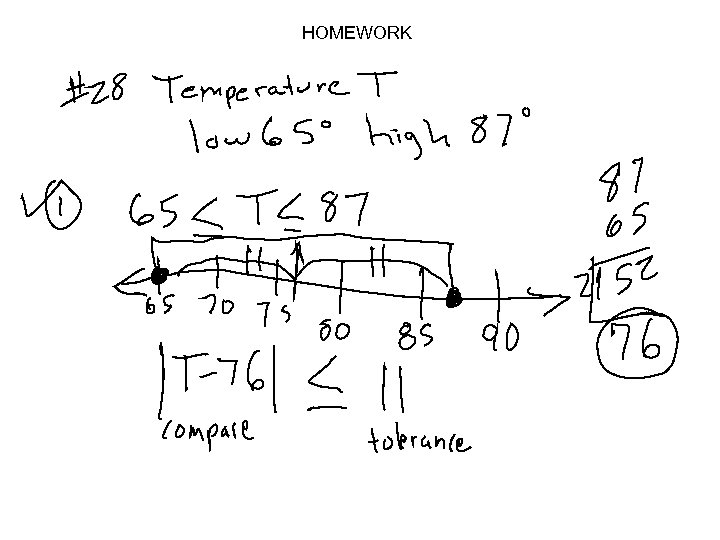 HOMEWORK
#28 Temperature T
low 65° high 87°
① 65 ≤ T ≤ 87
87
65
2 152
76
11 11
65 70 75 80 85 90
|T-76| ≤ 11
compare tolerance